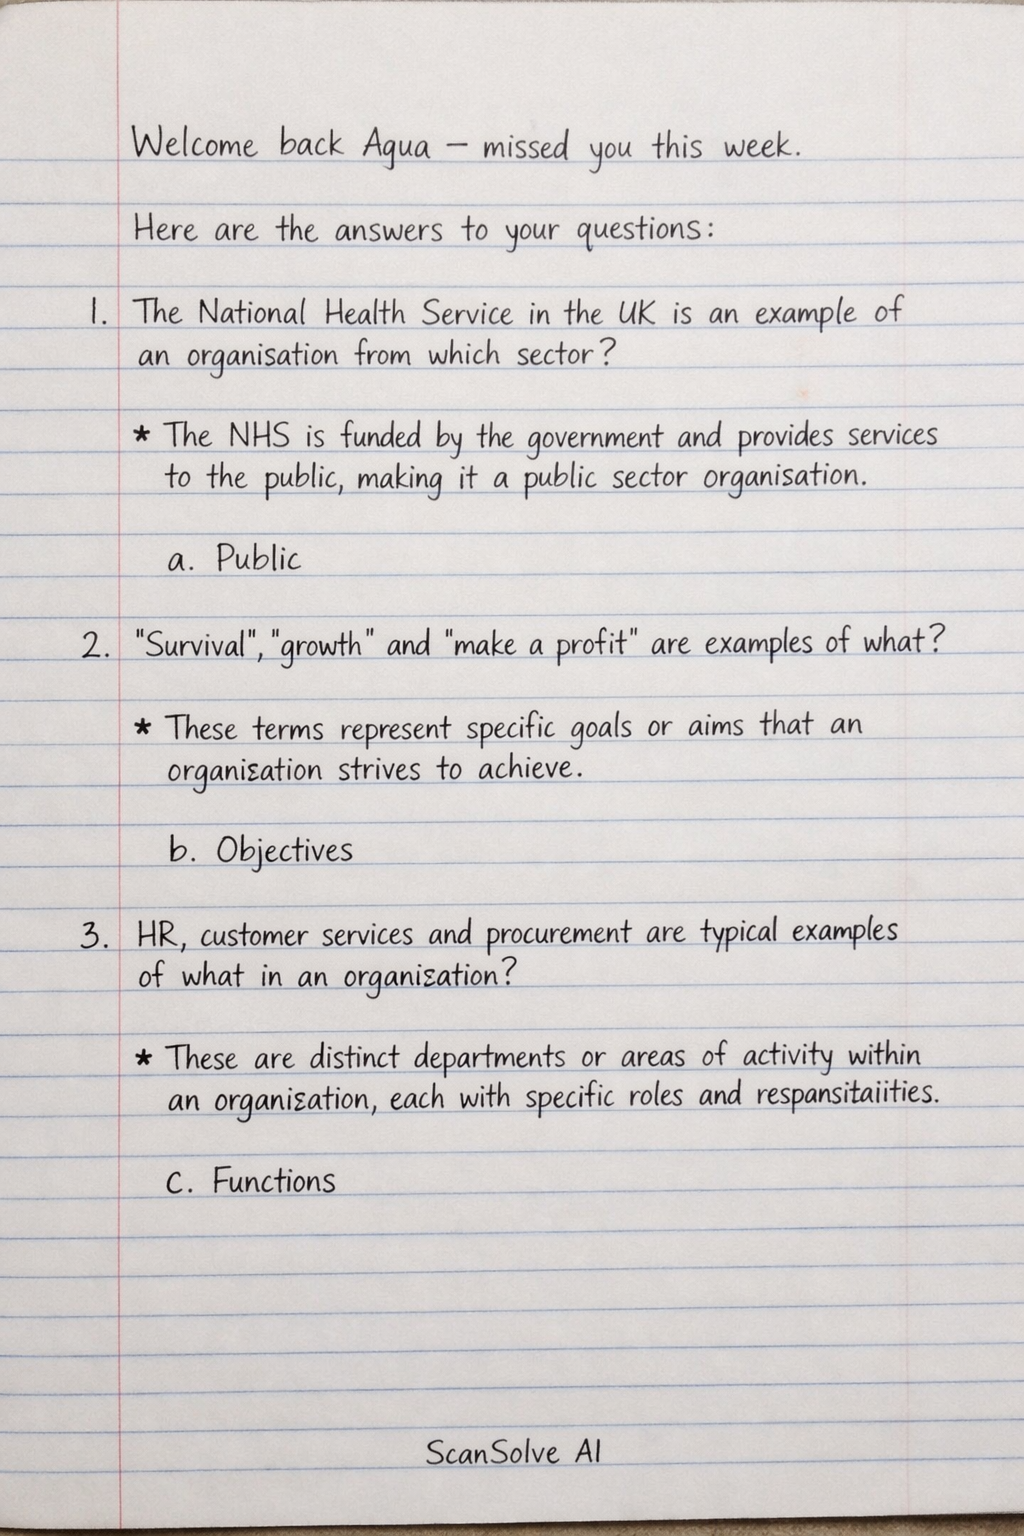 Welcome back Agua – missed you this week.
Here are the answers to your questions:
1. The National Health Service in the UK is an example of
an organisation from which sector?
* The NHS is funded by the government and provides services
to the public, making it a public sector organisation.
a. Public
2. "Survival", "growth" and "make a profit" are examples of what?
* These terms represent specific goals or aims that an
organization strives to achieve.
b. Objectives
3. HR, customer services and procurement are typical examples
of what in an organization?
* These are distinct departments or areas of activity within
an organization, each with specific roles and respansitaiities.
c. Functions
ScanSolve AI